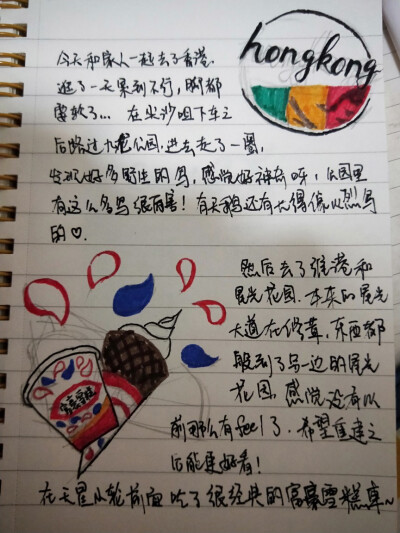 hongkong
今天和家人一起去了香港.
逛了一天累到不行,脚都
要软了... 在尖沙咀下车之
后路过九龙公园,进去走了一圈,
发现好多野生的鸟,感觉好神奇呀,公园里
有这么多鸟很厉害!有天鹅还有大得像火烈鸟
的♡.
然后去了维港和
星光花园.本来的星光
大道在修葺,东西都
搬到了另一边的星光
花园,感觉没有以
前那么有feel了.希望重建之
后能更好看!
富豪雪糕
在天星小轮前面吃了很经典的富豪雪糕车~